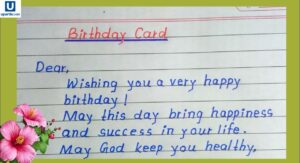 U
Birthday Card
Dear,
Wishing you a very happy
birthday!
May this day bring happiness
and success in your life.
May God keep you healthy.